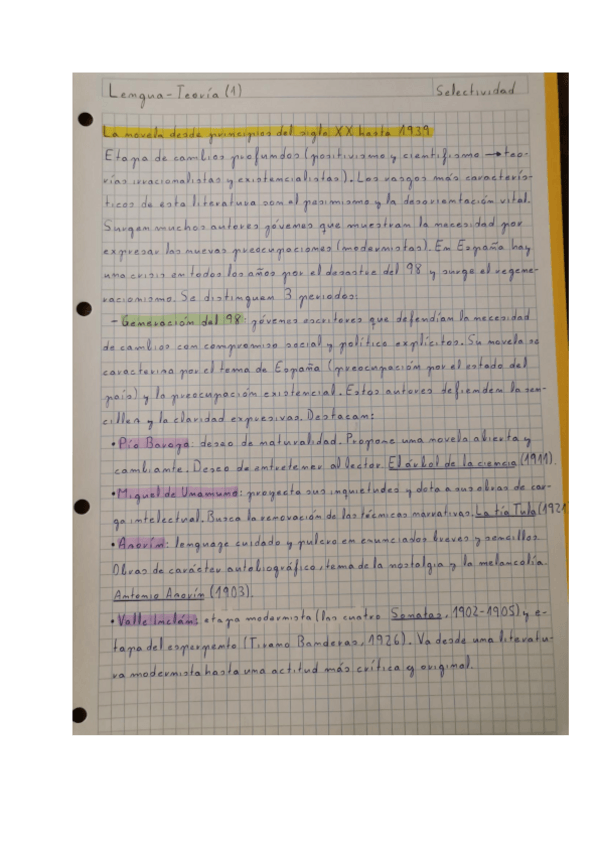 Lengua-Teoría (1) Selectividad
La novela desde principios del siglo XX hasta 1939
Etapa de cambios profundos (positivismo y cientifismo → teo-
rías irracionalistas y existencialistas). Los rasgos más caracterís-
ticos de esta literatura son el pesimismo y la desorientación vital.
Surgen muchos autores jóvenes que muestran la necesidad por
expresar las nuevas preocupaciones (modernistas). En España hay
una crisis en todos los años por el desastre del 98 y surge el regene-
racionismo. Se distinguen 3 periodos:
- Generación del 98: jóvenes escritores que defendían la necesidad
de cambios con compromiso social y político explícitos. Su novela se
caracteriza por el tema de España (preocupación por el estado del
país) y la preocupación existencial. Estos autores defienden la sen-
cillez y la claridad expresivas. Destacan:
• Pío Baroja: deseo de naturalidad. Propone una novela abierta y
cambiante. Deseo de entretener al lector. El árbol de la ciencia (1911).
• Miguel de Unamuno: proyecta sus inquietudes y dota a sus obras de car-
ga intelectual. Busca la renovación de las técnicas narrativas. La tía Tula (1921
• Azorín: lenguage cuidado y pulcro en enunciados breves y sencillos.
Obras de carácter autobiográfico, tema de la nostalgia y la melancolía.
Antonio Azorín (1903).
• Valle Inclán: etapa modernista (las cuatro Sonatas, 1902-1905) y e-
tapa del esperpento (Tirano Banderas, 1926). Va desde una literatu-
ra modernista hasta una actitud más crítica y original.